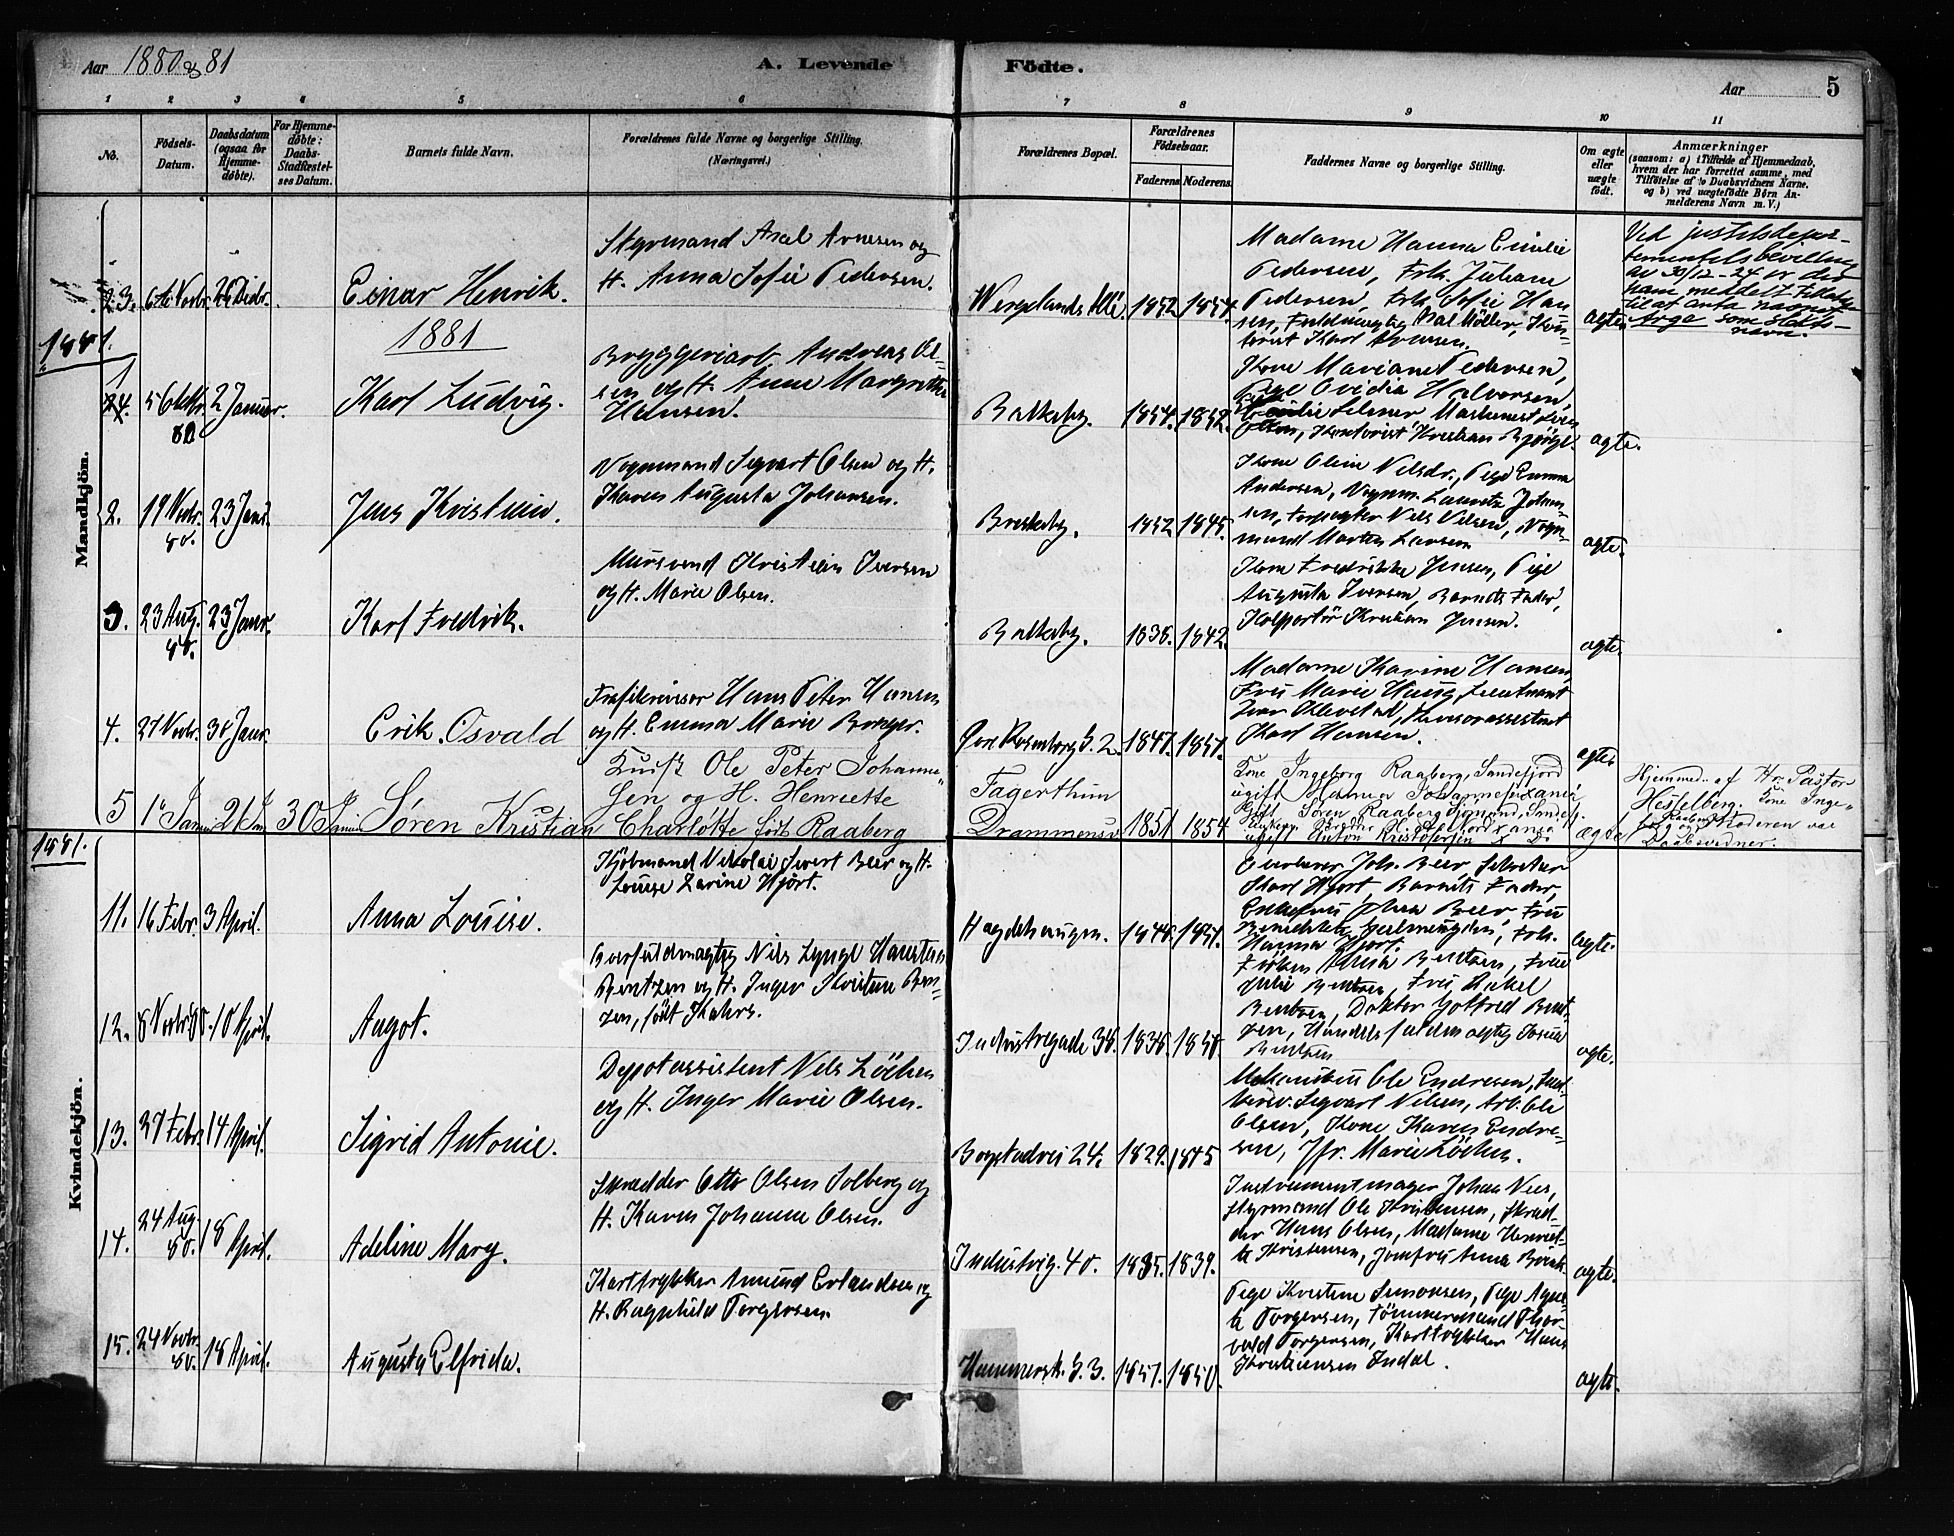 Aar 1880 & 81
A. Levende Födte.
Aar 5
1 2 3 4 5 6 7 8 9 10 11
No.
Födsels-Datum.
Daabsdatum (ogsaa for Hjemme-døbte).
For Hjemme-døbte: Daabs-Stadfæstel-ses Datum.
Barnets fulde Navn.
Forældrenes fulde Navne og borgerlige Stilling.
(Næringsvei.)
Forældrenes Bopæl.
Forældrenes Födselsaar.
Faderens. Moderens.
Faddernes Navne og borgerlige Stilling.
Om ægte eller uægte født.
Anmærkninger
(saasom: a) i Tilfælde af Hjemmedaab,
hvem der har forrettet samme, med
Tilföielse af to Daabsvidners Navne.
og b) ved uægtefödte Börn An-
melderens Navn m. V.)
Mandkjön.
23. 6te Novbr. 26 Decbr.
Einar Henrik.
Styrmand Axel Arnesen og
H. Anna Sofie Pedersen.
Wergelands Allé. 1852 1854.
Madame Hanna Emilie
Pedersen, Frk. Juliane
Pedersen, Frk. Sofie Han-
sen, Fuldmægtig Axel Möller, Kon-
torist Karl Arnesen.
ægte
Ved justisdepar-
tementets bevilling
av 30/12-24 er det
ham meddelt tilladelse
til at anta navnet
Arge som slekts-
navn.
1881.
1881
1 24. 5 Oktbr. 80 2 Januar.
Karl Ludvig.
Bryggeriarb. Andreas Ol-
sen og H. Anne Margrethe
Hansen.
Balkeby. 1854. 1852.
Kone Mariane Pedersen,
Pige Ovidia Halvorsen,
Kontorist Kristian
ægte.
2. 19 Novbr. 80. 23 Janr.
Jens Kristian.
Vognmand Sigvart Olsen og H.
Karen Augusta Johansen.
Briskeby. 1852 1845.
Kone Oline Nilsdr., Pige Emma
Andersen, Vognm. Lauritz Johan-
sen, Forpagter Nils Nilsen, Vogn-
mand Martin Larsen
ægte.
3. 23 Aug. 80. 23 Janr.
Karl Fredrik.
Mursvend Kristian Iversen
og H. Marie Olsen.
Balkeby. 1838. 1842.
Kone Fredrikke Jensen, Pige
Augusta Iversen, Barnets Fader,
Kolportör Kristian Jensen.
ægte.
4. 27 Novbr. 30 Janr.
Erik Osvald
Trafikrevisor Hans Peter Hansen
og H. Emma Marie Borger.
Rosenborg G. 2. 1847. 1857.
Madame Karine Hansen,
Fru Marie Haug, Lieutnant
Iver Klevstad, Revisorassistent
Karl Hansen.
ægte
5 1ste Januar 21 Jan 30 Januar
Søren Kristian
Ole Peter Johanne-
sen og H. Henriette
Charlotte født Raaberg
Fagerthun
Drammensv 1851 1854
Kone Ingeborg Raaberg, Sandefjord
ugift Hanna Johannesen
Søren Raaberg Sjømand, Sandefj.
ugift Anton Kristofersen
ægte
Hjemmed. af Hr. Pastor
Hesselberg. Kone Inge-
borg Raaberg og Moderen var
Daabsvidner.
1881.
Kvindekjön.
11. 16 Febr. 3 April.
Anna Louise.
Kjöbmand Nikolai Sivert Beer og H.
Louise Larine Hjort.
Hægdehaugen. 1848. 1857.
Joh. Beer, Sekretær
Karl Hjort, Barnets Fader,
Enkefru Beer, Fru
Hanna Hjort.
ægte.
12. 8 Novbr. 80. 10 April.
Aagot.
Nils Lynge
Bentzen og H. Inger Kristine Ben-
zen, født Kahrs.
Industrigade 38. 1838. 1850.
Frøken Bentzen, Frue
Julie Bentzen, Fru Rakel
Bentzen, Doktor Gotfred Bent-
zen, Handelsfuldmægtig Josua
Bentzen
ægte.
13. 27 Febr. 14 April.
Sigrid Antonie.
Depotassistent Nils Löchen
og H. Inger Marie Olsen.
Bogstadvei 24. 1829. 1845
Ole Endresen,
Sigvart Nilsen, Arb. Ole
Olsen, Kone Karen Endre-
sen, Jfr. Marie Löchen.
14. 24 Aug. 80. 18 April.
Adeline Mary.
Skrædder Otto Olsen Solberg og
H. Karen Johanne Olsen.
Industrig. 40. 1835. 1839.
Instrumentmager Johan Nees,
Styrmand Ole Kristensen, Skræd-
der Hans Olsen, Madame Henriet-
te Kristensen, Jomfru Anna
ægte.
15. 24 Novbr. 80. 18 April.
Augusta Elfrida.
Karttrykker Amund Erlandsen og
H. Ragnhild Torgersen.
Hammersb. G. 3. 1851. 1850.
Pige Kristine Simonsen, Pige Agne-
te Torgersen, Tömmermand Thor-
vald Torgersen, Karttrykker Hans
Kristiansen Indal.
ægte.